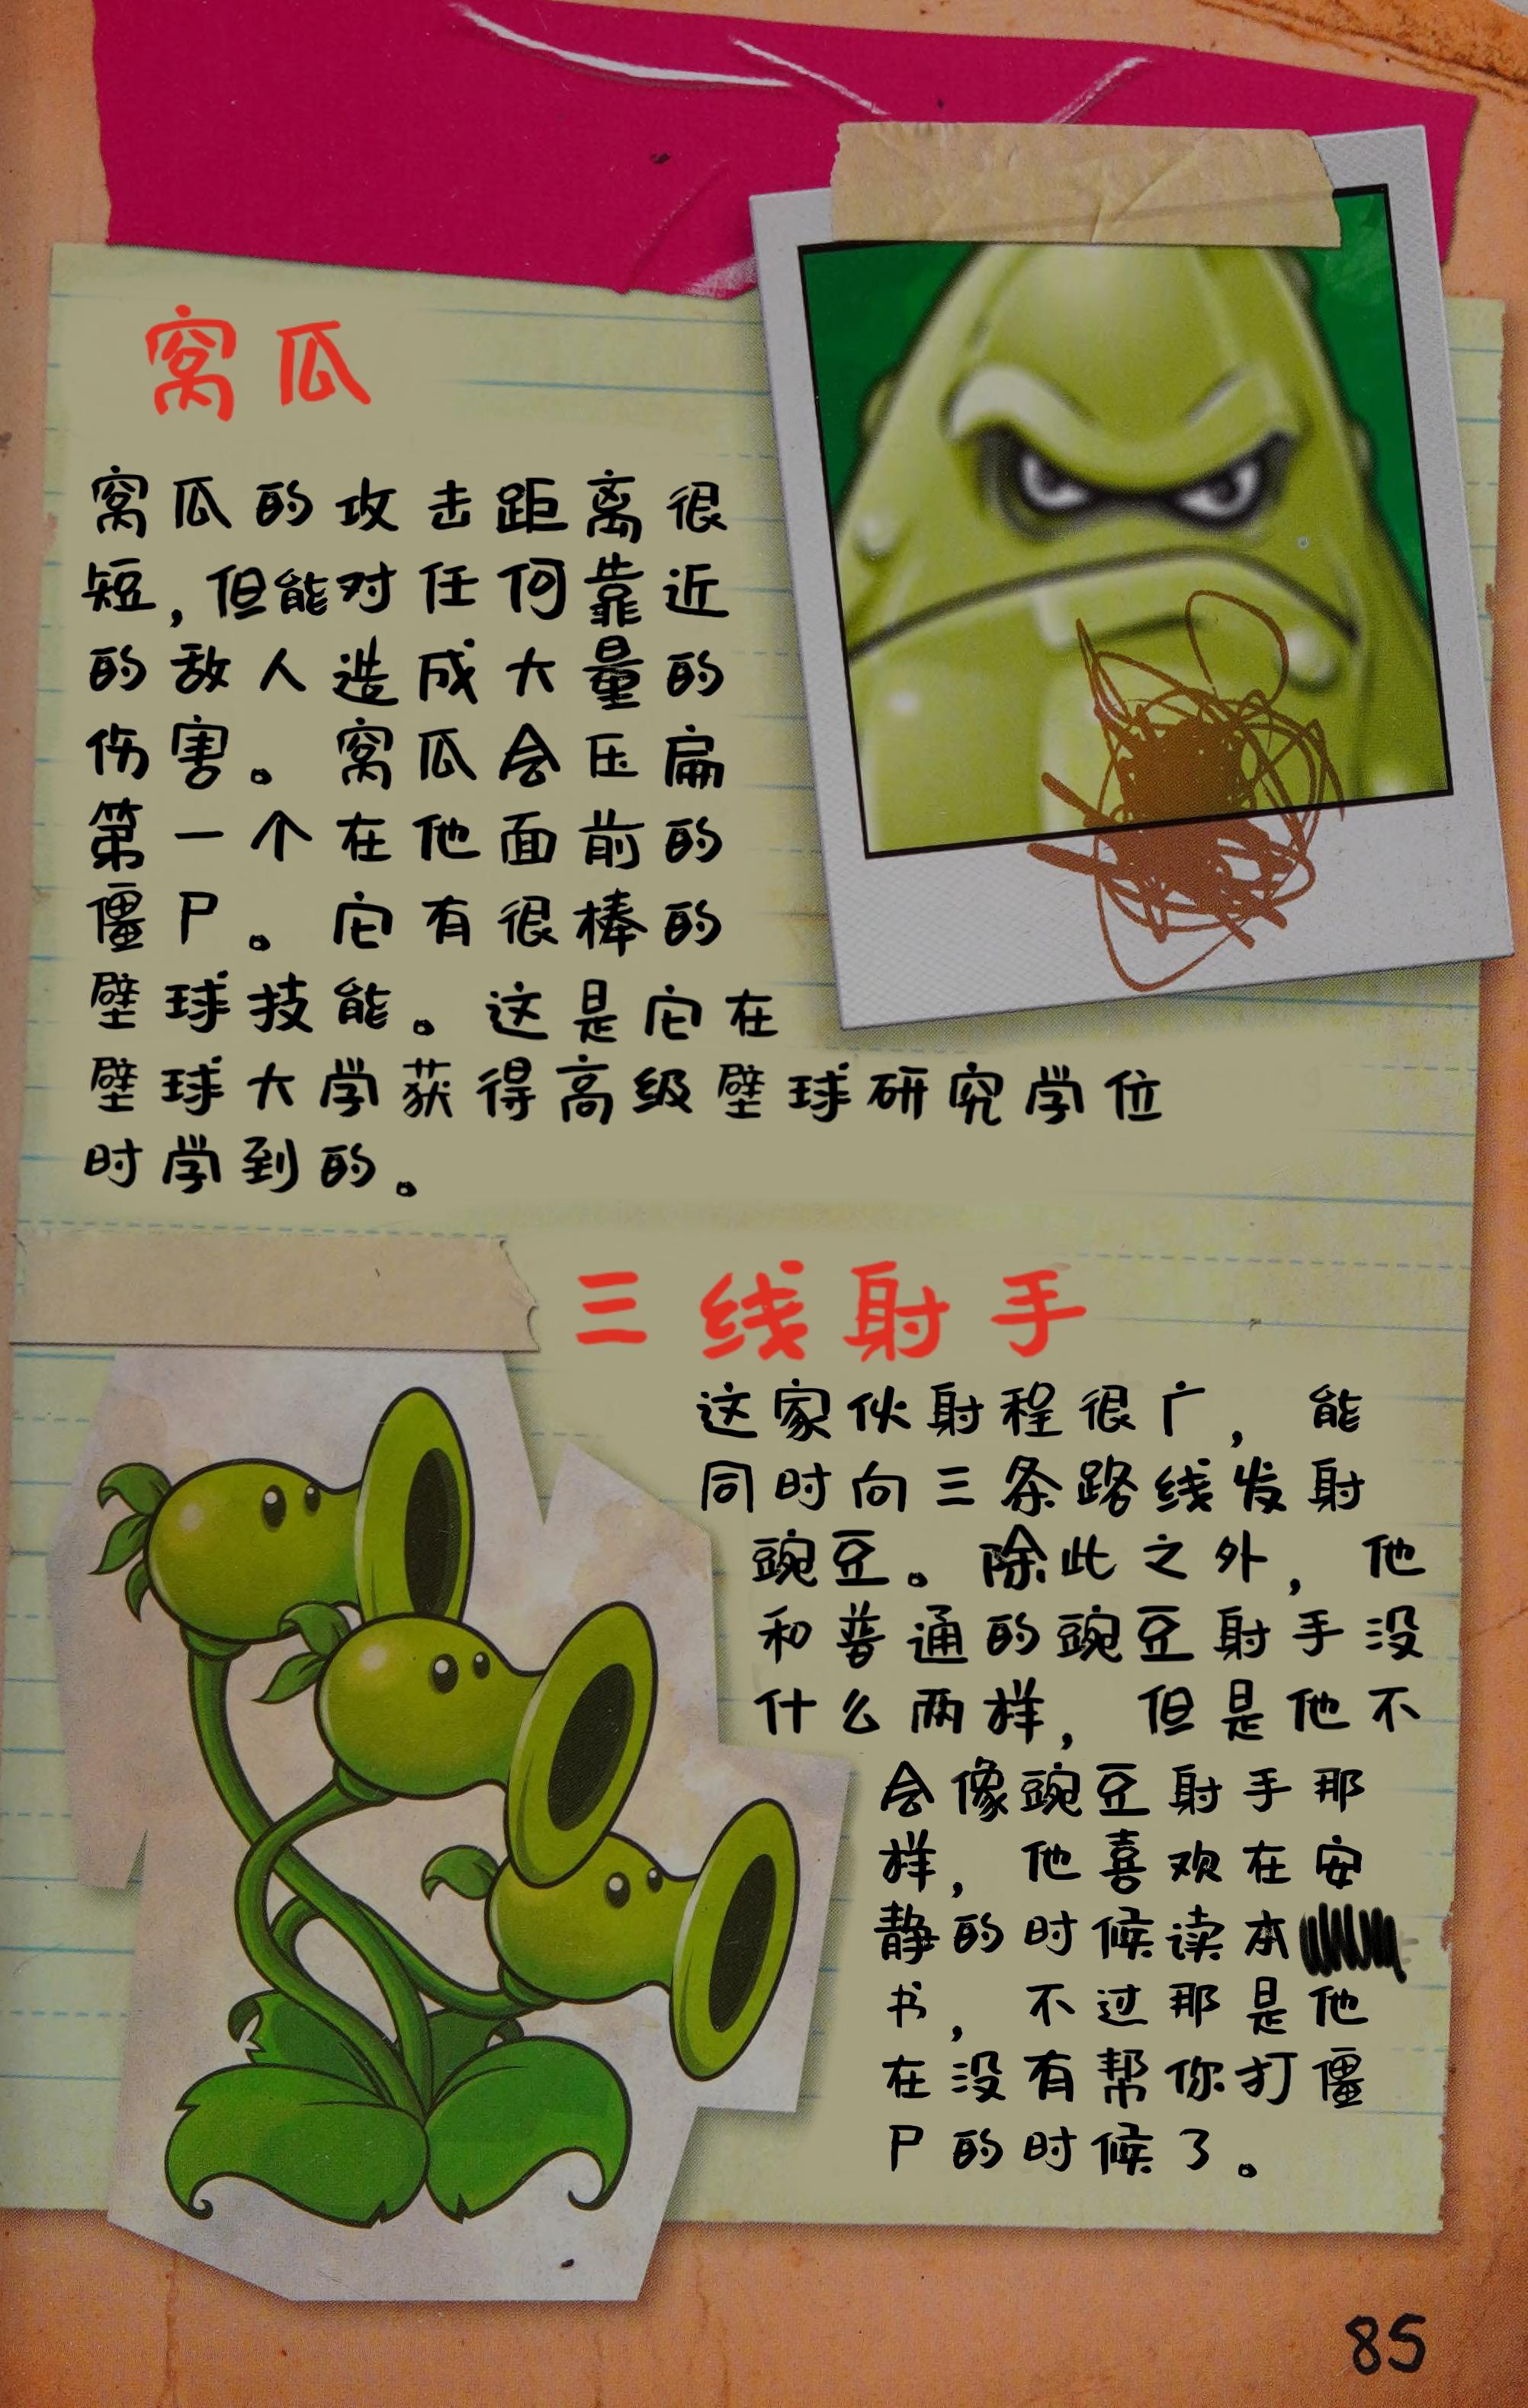 窝瓜
窝瓜的攻击距离很
短,但能对任何靠近
的敌人造成大量的
伤害。窝瓜会压扁
第一个在他面前的
僵尸。它有很棒的
壁球技能。这是它在
壁球大学获得高级壁球研究学位
时学到的。
三线射手
这家伙射程很广,能
同时向三条路线发射
豌豆。除此之外,他
和普通的豌豆射手没
什么两样,但是他不
会像豌豆射手那
样,他喜欢在安
静的时候读本
书,不过那是他
在没有帮你打僵
尸的时候了。
85